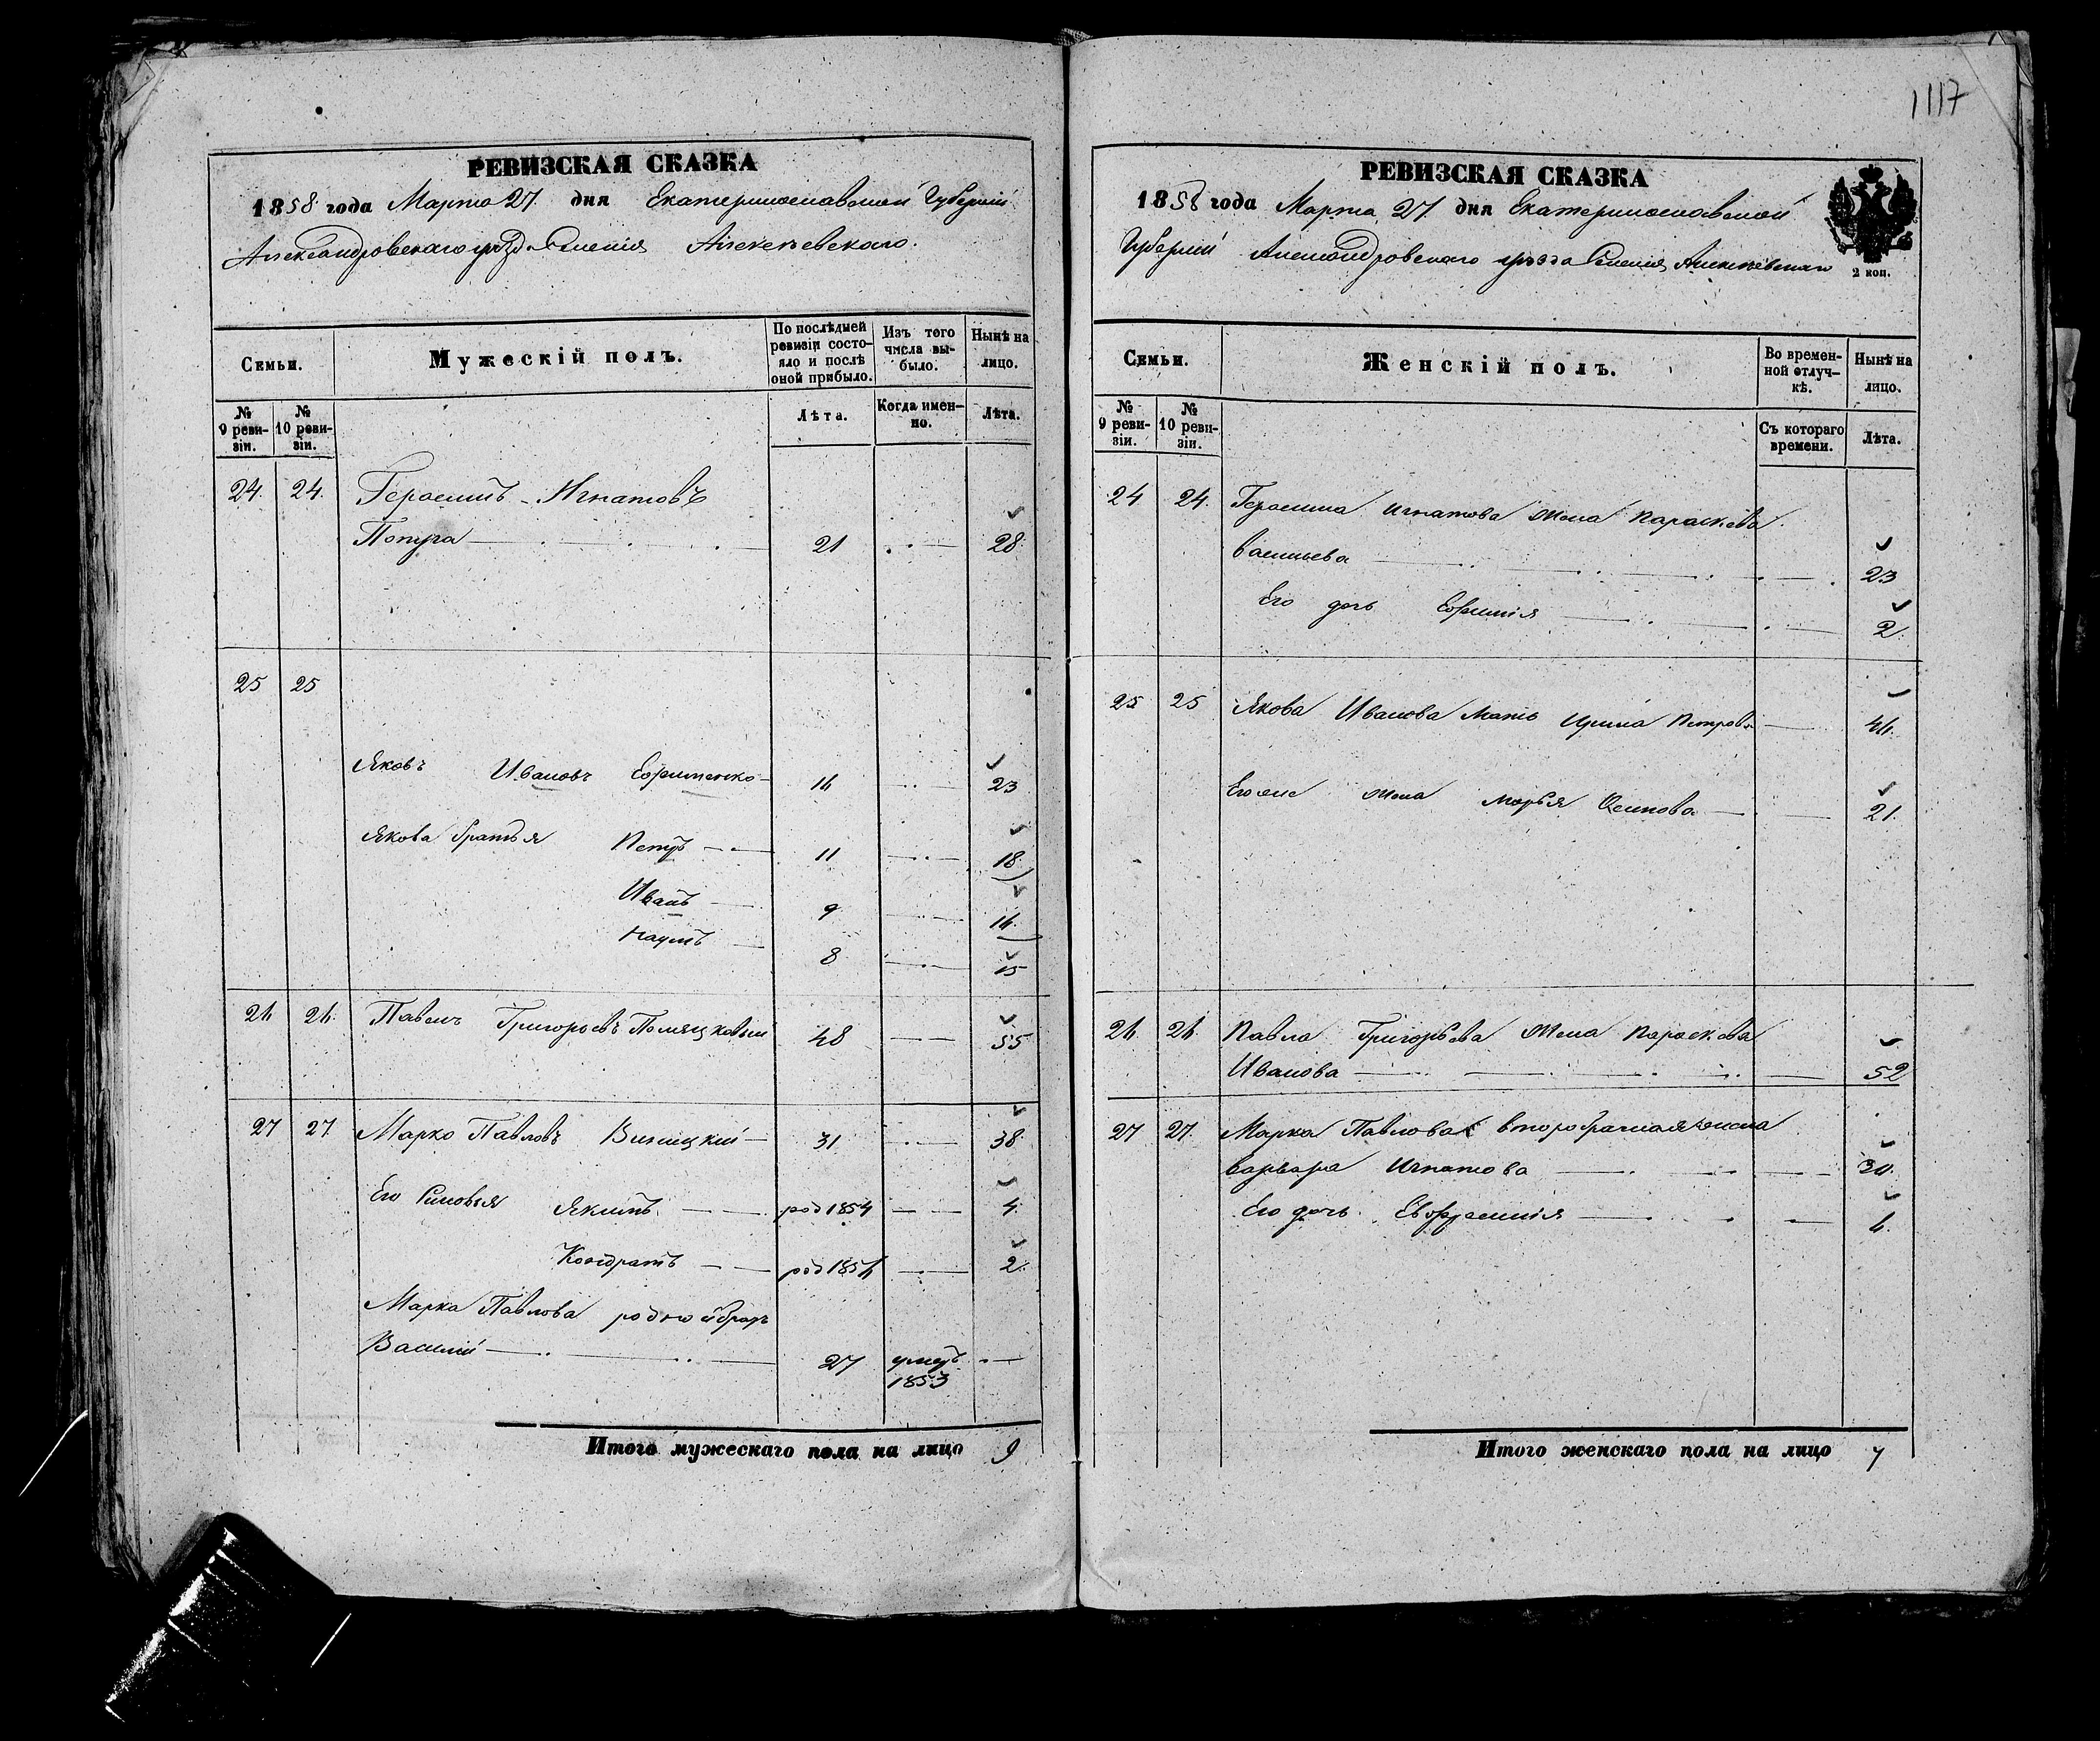 1117
РЕВИЗСКАЯ СКАЗКА
1858 года Марта 27 дня Екатеринославской Губернiи
Александровскаго уѣзда Селенiя Алексеевскаго.
Семьи.
Мужескiй полъ.
По послѣдней ревизiи состояло и послѣ оной прибыло.
Изъ того числа выбыло.
Нынѣ на лицо.
№ 9 ревизiи.
№ 10 ревизiи.
Лѣта.
Когда именно.
Лѣта.
24. 24. Герасимъ Игнатовъ
Попуга 21 28
25 25
Яковъ Ивановъ Ефименко 16 23
Якова братья Петръ 11 18
Иванъ 9 16
Наумъ 8 15
26 26. Павелъ Григорьевъ 48 55
27 27 Марко Павловъ Виницкiй 31 38
Его Сыновья Якимъ род 1854 4
Кондратъ род 1856 2
Марка Павлова родной братъ
Василiй 27 умеръ
1853
Итого мужескаго пола на лицо 9
РЕВИЗСКАЯ СКАЗКА
1858 года Марта 27 дня Екатеринославской
Губернiи Александровскаго уѣзда Селенiя Алексеевскаго
2 коп.
Семьи.
Женскiй полъ.
Во временной отлучкѣ.
Нынѣ на лицо.
№ 9 ревизiи.
№ 10 ревизiи.
Съ котораго времени.
Лѣта.
24 24. Герасима Игнатова жена Параскева
Васильева 23
Его дочь Ефимiя 2
25 25 Якова Иванова мать Ирина Петрова 46
Его же жена Марья Осипова 21
26 26 Павла Григорьева жена Параскева
Иванова 52
27 27. Марка Павлова второбрачная жена
Варвара Игнатова 30
Его дочь Евфросинiя 6
Итого женскаго пола на лицо 7